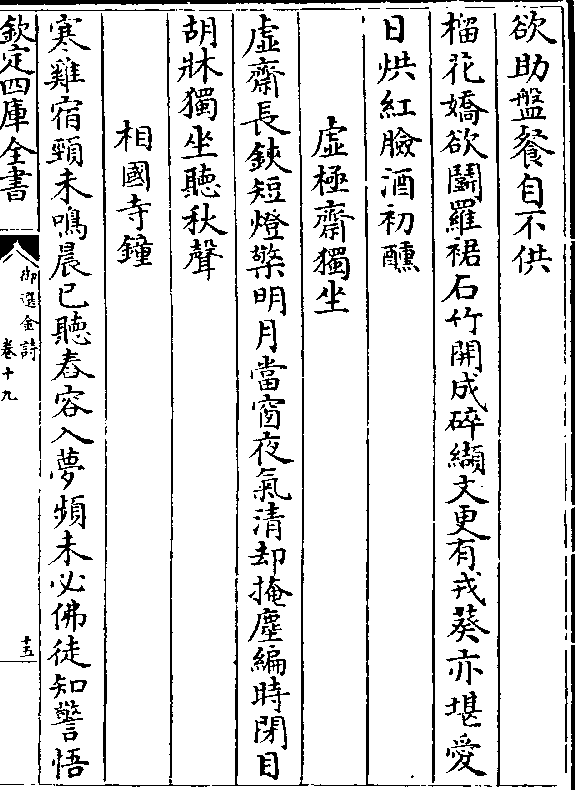 欲助盤餐自不供
榴花嬌欲鬭羅裙石竹開成碎纈文更有戎葵亦堪愛
日烘紅臉酒初醺
虛極齋獨坐
虛齋長鋏短燈檠明月當窗夜氣清却掩塵編時閉目
胡牀獨坐聽秋聲
相國寺鐘
寒雞宿頸未鳴晨已聽舂容入夢頻未必佛徒知警悟
欽定四庫全書
御選金詩
卷十九
十五